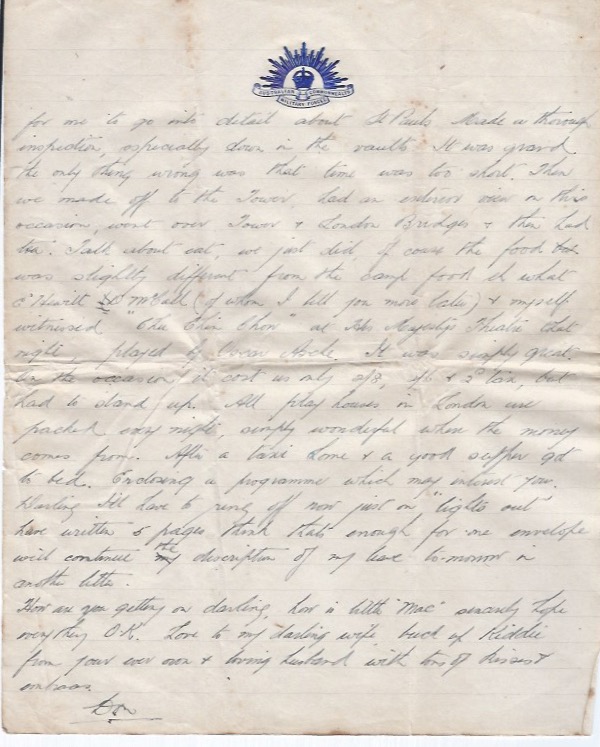 AUSTRALIAN COMMONWEALTH
MILITARY FORCES
for me to go into detail about St Pauls Made a thorough
inspection, especially down in the vaults. It was grand
the only thing wrong was that time was too short. Then
we made off to the Tower, had an exterior view on this
occasion, went over Tower & London Bridges & then had
tea. Talk about eat, we just did, of course the food
was slightly different from the camp food
Hewitt McCall (of whom I tell you more later) & myself
witnessed "Chu Chin Chow" at His Majestys Theatre that
night, played by Oscar Asche. It was simply great.
On the occasion it cost us only 2/8, 2/6 & 2d tax, but
had to stand up. All play houses in London are
packed every night, simply wonderful where the money
comes from. After a taxi home & a good supper got
to bed. Enclosing a programme which may interest you.
Darling I'll have to ring off now just on "lights out"
have written 5 pages think thats enough for one envelope
will continue the description of my leave to-morrow in
another letter.
How are you getting on darling, how is little "Mac" sincerely hope
everything O.K. Love to my darling wife buck up Kiddie
from your ever own & loving husband with tons of kisses &
embraces
Don